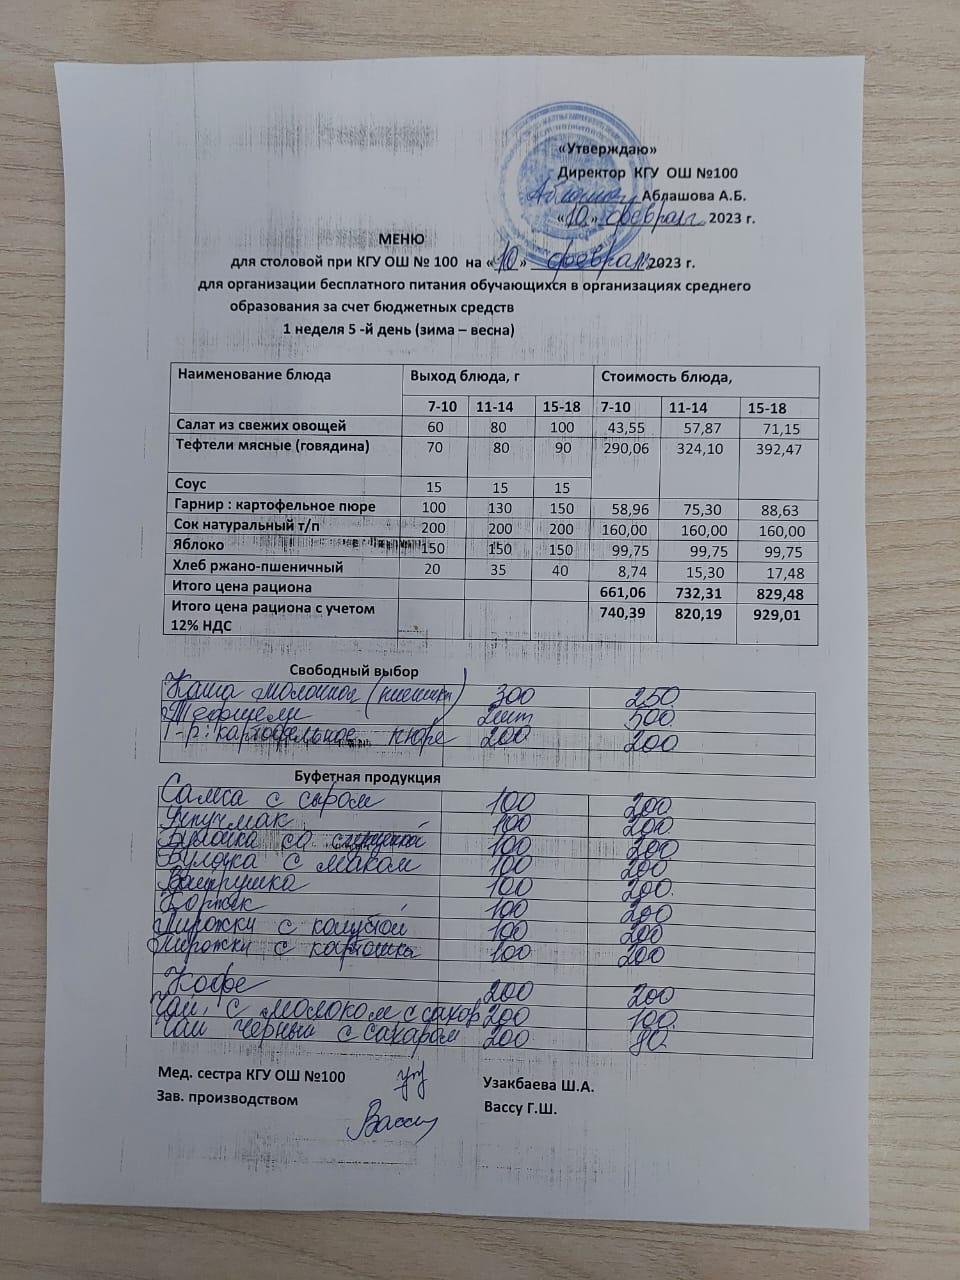 «Утверждаю»
Директор КГУ ОШ №100
Аблашова А.Б.
«10» февраля 2023 г.
МЕНЮ
для столовой при КГУ ОШ № 100 на «10» февраля 2023 г.
для организации бесплатного питания обучающихся в организациях среднего
образования за счет бюджетных средств
1 неделя 5 -й день (зима – весна)
Наименование блюда Выход блюда, г Стоимость блюда,
7-10 11-14 15-18 7-10 11-14 15-18
Салат из свежих овощей 60 80 100 43,55 57,87 71,15
Тефтели мясные (говядина) 70 80 90 290,06 324,10 392,47
Соус 15 15 15
Гарнир : картофельное пюре 100 130 150 58,96 75,30 88,63
Сок натуральный т/п 200 200 200 160,00 160,00 160,00
Яблоко 150 150 150 99,75 99,75 99,75
Хлеб ржано-пшеничный 20 35 40 8,74 15,30 17,48
Итого цена рациона 661,06 732,31 829,48
Итого цена рациона с учетом 740,39 820,19 929,01
12% НДС
Свободный выбор
Каша молочная 300 250
Тефтели 2шт 500
Г-р: картофельное пюре 200 200
Буфетная продукция
Самса с сыром 100 200
Учпучмак 100 200
Булочка со сгущенкой 100 200
Булочка с маком 100 200
Ватрушка 100 200
Коржик 100 200
Пирожки с капустой 100 200
Пирожки с картошка 100 200
Кофе 200 200
Чай с молоком с сахар 200 100
Чай черный с сахаром 200 80
Мед. сестра КГУ ОШ №100 Узакбаева Ш.А.
Зав. производством Вассу Г.Ш.
Вассу